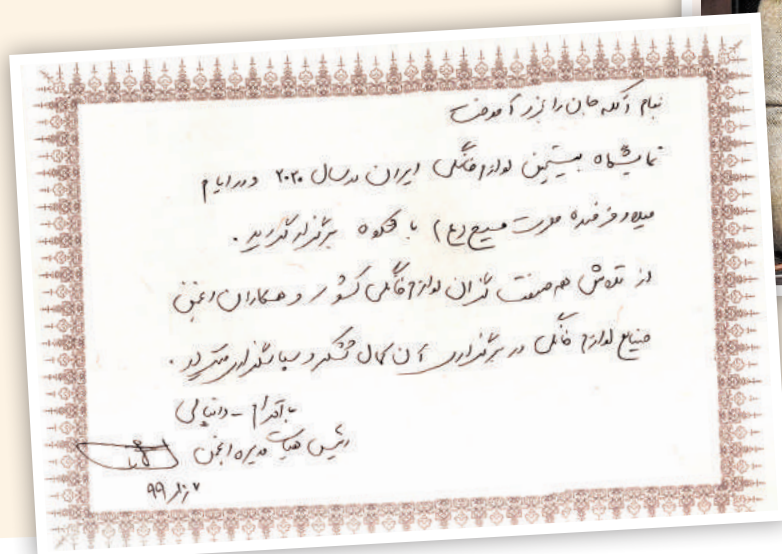 بنام آنکه جان را خرد آموخت
نمایشگاه بیستمین لوازم خانگی ایران در سال ۲۰۲۰ و در ایام
میلاد فرخنده حضرت مسیح (ع) با شکوه برگزار گردید.
از تلاش همه صنعت گران لوازم خانگی کشور و همکاران انجمن
صنایع لوازم خانگی در برگزاری آن کمال تشکر و سپاسگذاری میگردد.
با احترام - دانیالی
رئیس هیات مدیره انجمن
۹۹